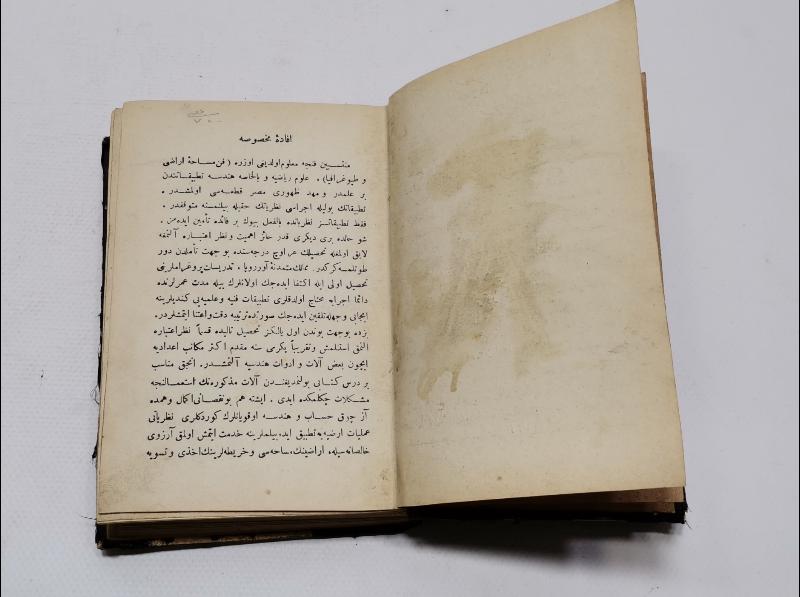 افادهٔ مخصوصه
منتسبين فنجه معلوم اولدينى اوزره (فن مساحهٔ اراضى
و طپوغرافيا) ، علوم رياضيه و بالخاصه هندسه تطبيقاتندن
بر علمدر و مهد ظهورى مصر قطعه‌سى اولمشدر .
تطبيقاتك بوليله اجراسى نظرياتك حقيله بيلنمسنه متوقفدر .
فقط تطبيقاتسز نظرياتده بالفعل بيوك بر فائده تأمين ايده‌مز .
شو حالده برى ديكرى قدر حائز اهميت و نظر اعتباره آلنمغه
لايق اولمغله تحصيلك هر اوچ درجه‌سنده بو جهت تأملدن دور
طوتلمه‌مك كركدر . ممالك متمدنهٔ آوروپا ، تدريسات پروغراملرينى
تحصيل اولى ايله اكتفا ايده‌جك اولانلرك بيله مدت عمرلرنده
دائما اجرايه محتاج اولدقلرى تطبيقات فنيه و علميه‌يى كنديلرينه
ايجابى وجهله تلقين ايده‌جك صورتده ترتيبه دقت و اعتنا ايتمشلردر .
بزده بو جهت بوندن اول يالكز تحصيل تاليده قسماً نظر اعتباره
آلنمق استنلمش و تقريباً يكرمى سنه مقدم اكثر مكاتب اعداديه
ايچون بعض آلات و ادوات هندسيه آلنمشدر . انجق مناسب
بر درس كتابى بولنمديغندن آلات مذكوره‌نك استعمالنجه
مشكلات چكلمكده ايدى . ايشته هم بو نقصانى اكمال و همده
آز چوق حساب و هندسه اوقويانلرك كوردكلرى نظرياتى
عمليات ارضيه‌يه تطبيق ايده‌بيلملرينه خدمت ايتمش اولمق آرزوى
خالصانه‌سيله ، اراضينك ، مساحه‌سى و خريطه‌لرينك اخذى و تسويه